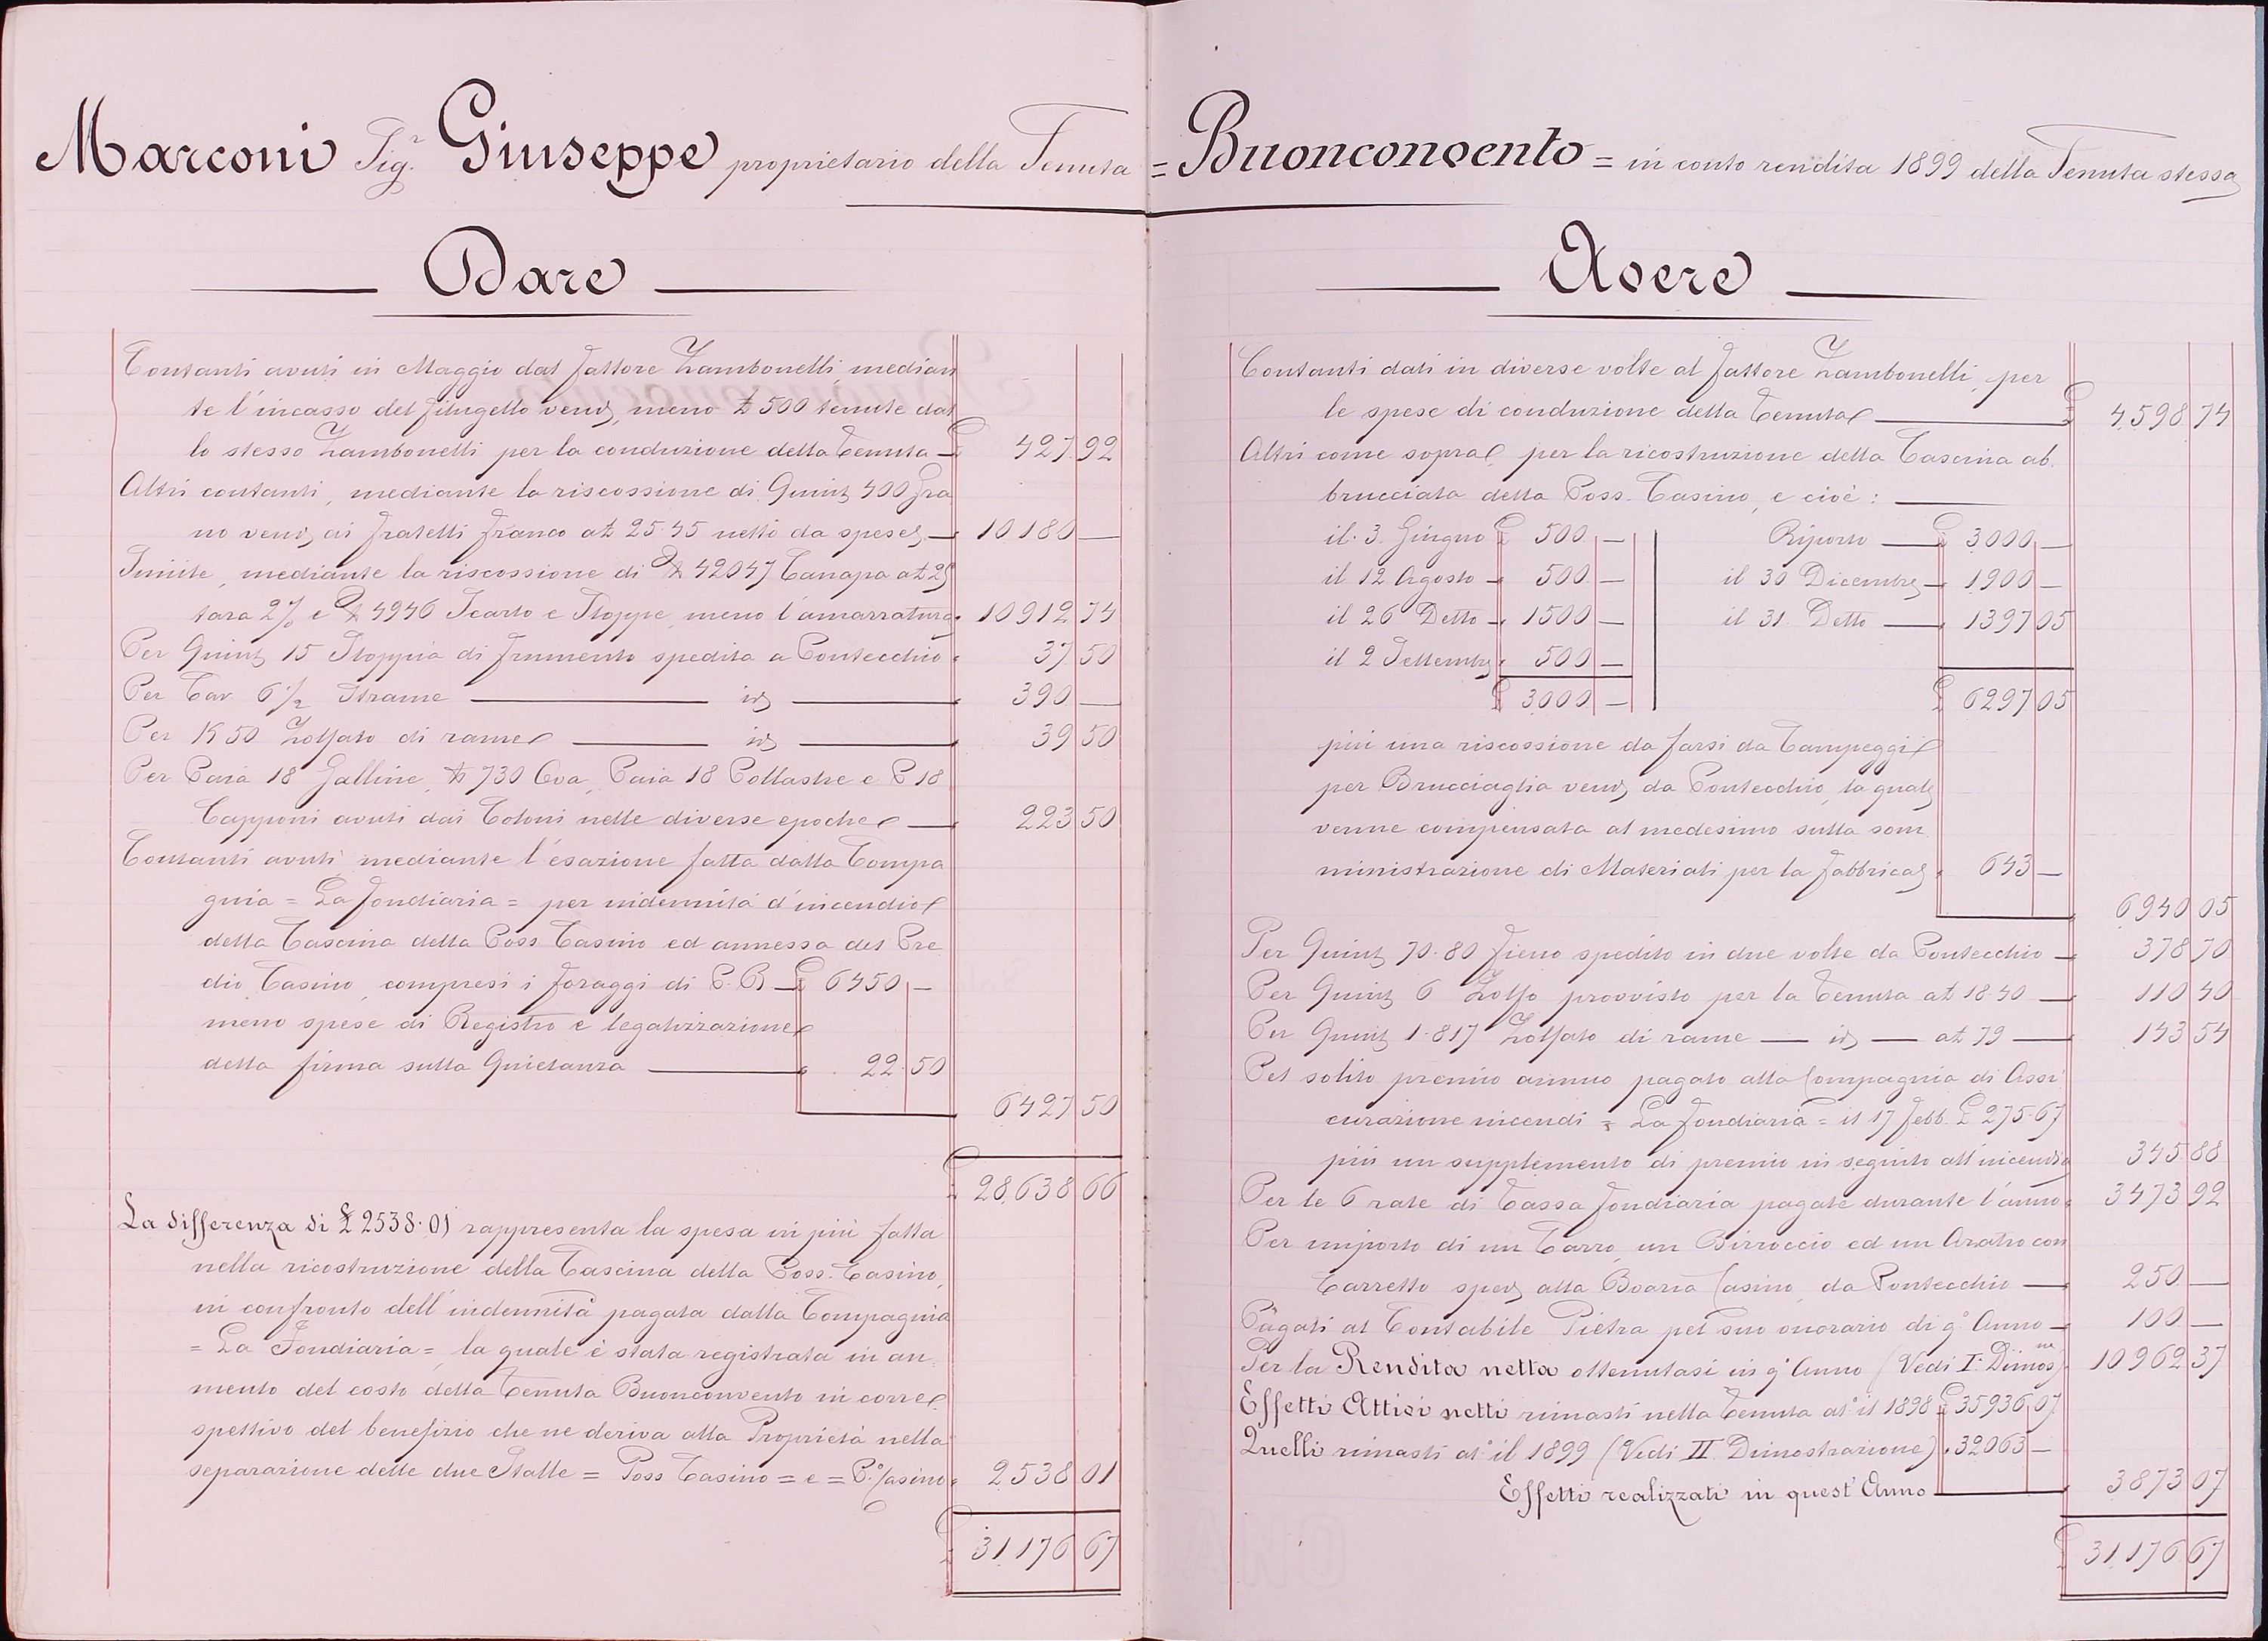 Marconi Sig.r Giuseppe proprietario della Tenuta = Buonconvento = in conto rendita 1899 della Tenuta stessa
Dare
Contanti avuti in Maggio dal fattore Zambonelli, median
te l'incasso del filugello vend, meno £ 500 tenute dal
lo stesso Zambonelli per la conduzione della Tenuta — £ 427 92
Altri contanti, mediante la riscossione di Quint 400 Gra
no vend ai fratelli Franco a £ 25.45 netti da spese — 10180 —
Simile, mediante la riscossione di 42047 Canapa a £ 25
tara 2% e 4946 Scarto e Stoppe, meno l'amarratura 10912 74
Per Quint 15 Stoppia di frumento spedita a Pontecchio 37 50
Per Car 6 1/2 Strame — id — 390 —
Per K 50 Zolfato di rame — id — 39 50
Per Paia 18 Galline, 730 Ova, Paia 18 Pollastre e P 18
Capponi avuti dai Coloni nelle diverse epoche — 223 50
Contanti avuti, mediante l'esazione fatta dalla Compa
gnia = La Fondiaria = per indennità d'incendio
della Cascina della Poss. Casino ed annessa del Pre
dio Casino, compresi i foraggi di P. B — £ 6450 —
meno spese di Registro e legalizzazione
della firma sulla Quietanza — 22.50
6427 50
£ 28,638 66
La differenza di £ 2538.01 rappresenta la spesa in più fatta
nella ricostruzione della Cascina della Poss. Casino,
in confronto dell'indennità pagata dalla Compagnia
= La Fondiaria =, la quale è stata registrata in au
mento del costo della Tenuta Buonconvento in corre
spettivo del benefizio che ne deriva alla Proprietà nella
separazione delle due Stalle = Poss Casino = e = P.o Casino = 2538 01
£ 31.176 67
Avere
Contanti dati in diverse volte al fattore Zambonelli, per
le spese di conduzione della Tenuta — £ 4598 74
Altri come sopra, per la ricostruzione della Cascina ab
brucciata della Poss. Casino, e cioè: —
il 3 Giugno £ 500 — Riporto — £ 3000 —
il 12 Agosto 500 — il 30 Dicembre 1900 —
il 26 Detto 1500 — il 31 Detto — 1397 05
il 2 Settembre 500 —
£ 3000 — £ 6297 05
più una riscossione da farsi da Campeggi
per Brucciaglia vend da Pontecchio, la quale
venne compensata al medesimo sulla som
ministrazione di Materiali per la fabbrica 643 —
6940 05
Per Quint 70.80 Fieno spedito in due volte da Pontecchio — 378 70
Per Quint 6 Zolfo provvisto per la Tenuta a £ 18.40 — 110 40
Per Quint 1.817 Zolfato di rame — id — a £ 79 — 143 54
Pel solito premio annuo pagato alla Compagnia di Assi
curazione incendi = La Fondiaria = il 17 Febb. £ 275.67
più un supplemento di premio in seguito all'incendio 345 88
Per le 6 rate di Tassa fondiaria pagate durante l'anno 3473 92
Per importo di un Carro, un Birroccio ed un Aratro con
Carretto sped alla Boaria Casino, da Pontecchio — 250 —
Pagati al Contabile Pietra pel suo onorario di q.o Anno — 100 —
Per la Rendita netta ottenutasi in q.o Anno (Vedi I.a Dimos.ne) 10962 37
Effetti Attivi netti rimasti nella Tenuta al il 1898 £ 35936,07
Quelli rimasti al il 1899 (Vedi II Dimostrazione) 32063 —
Effetti realizzati in quest'Anno — 3873 07
£ 31.176 67